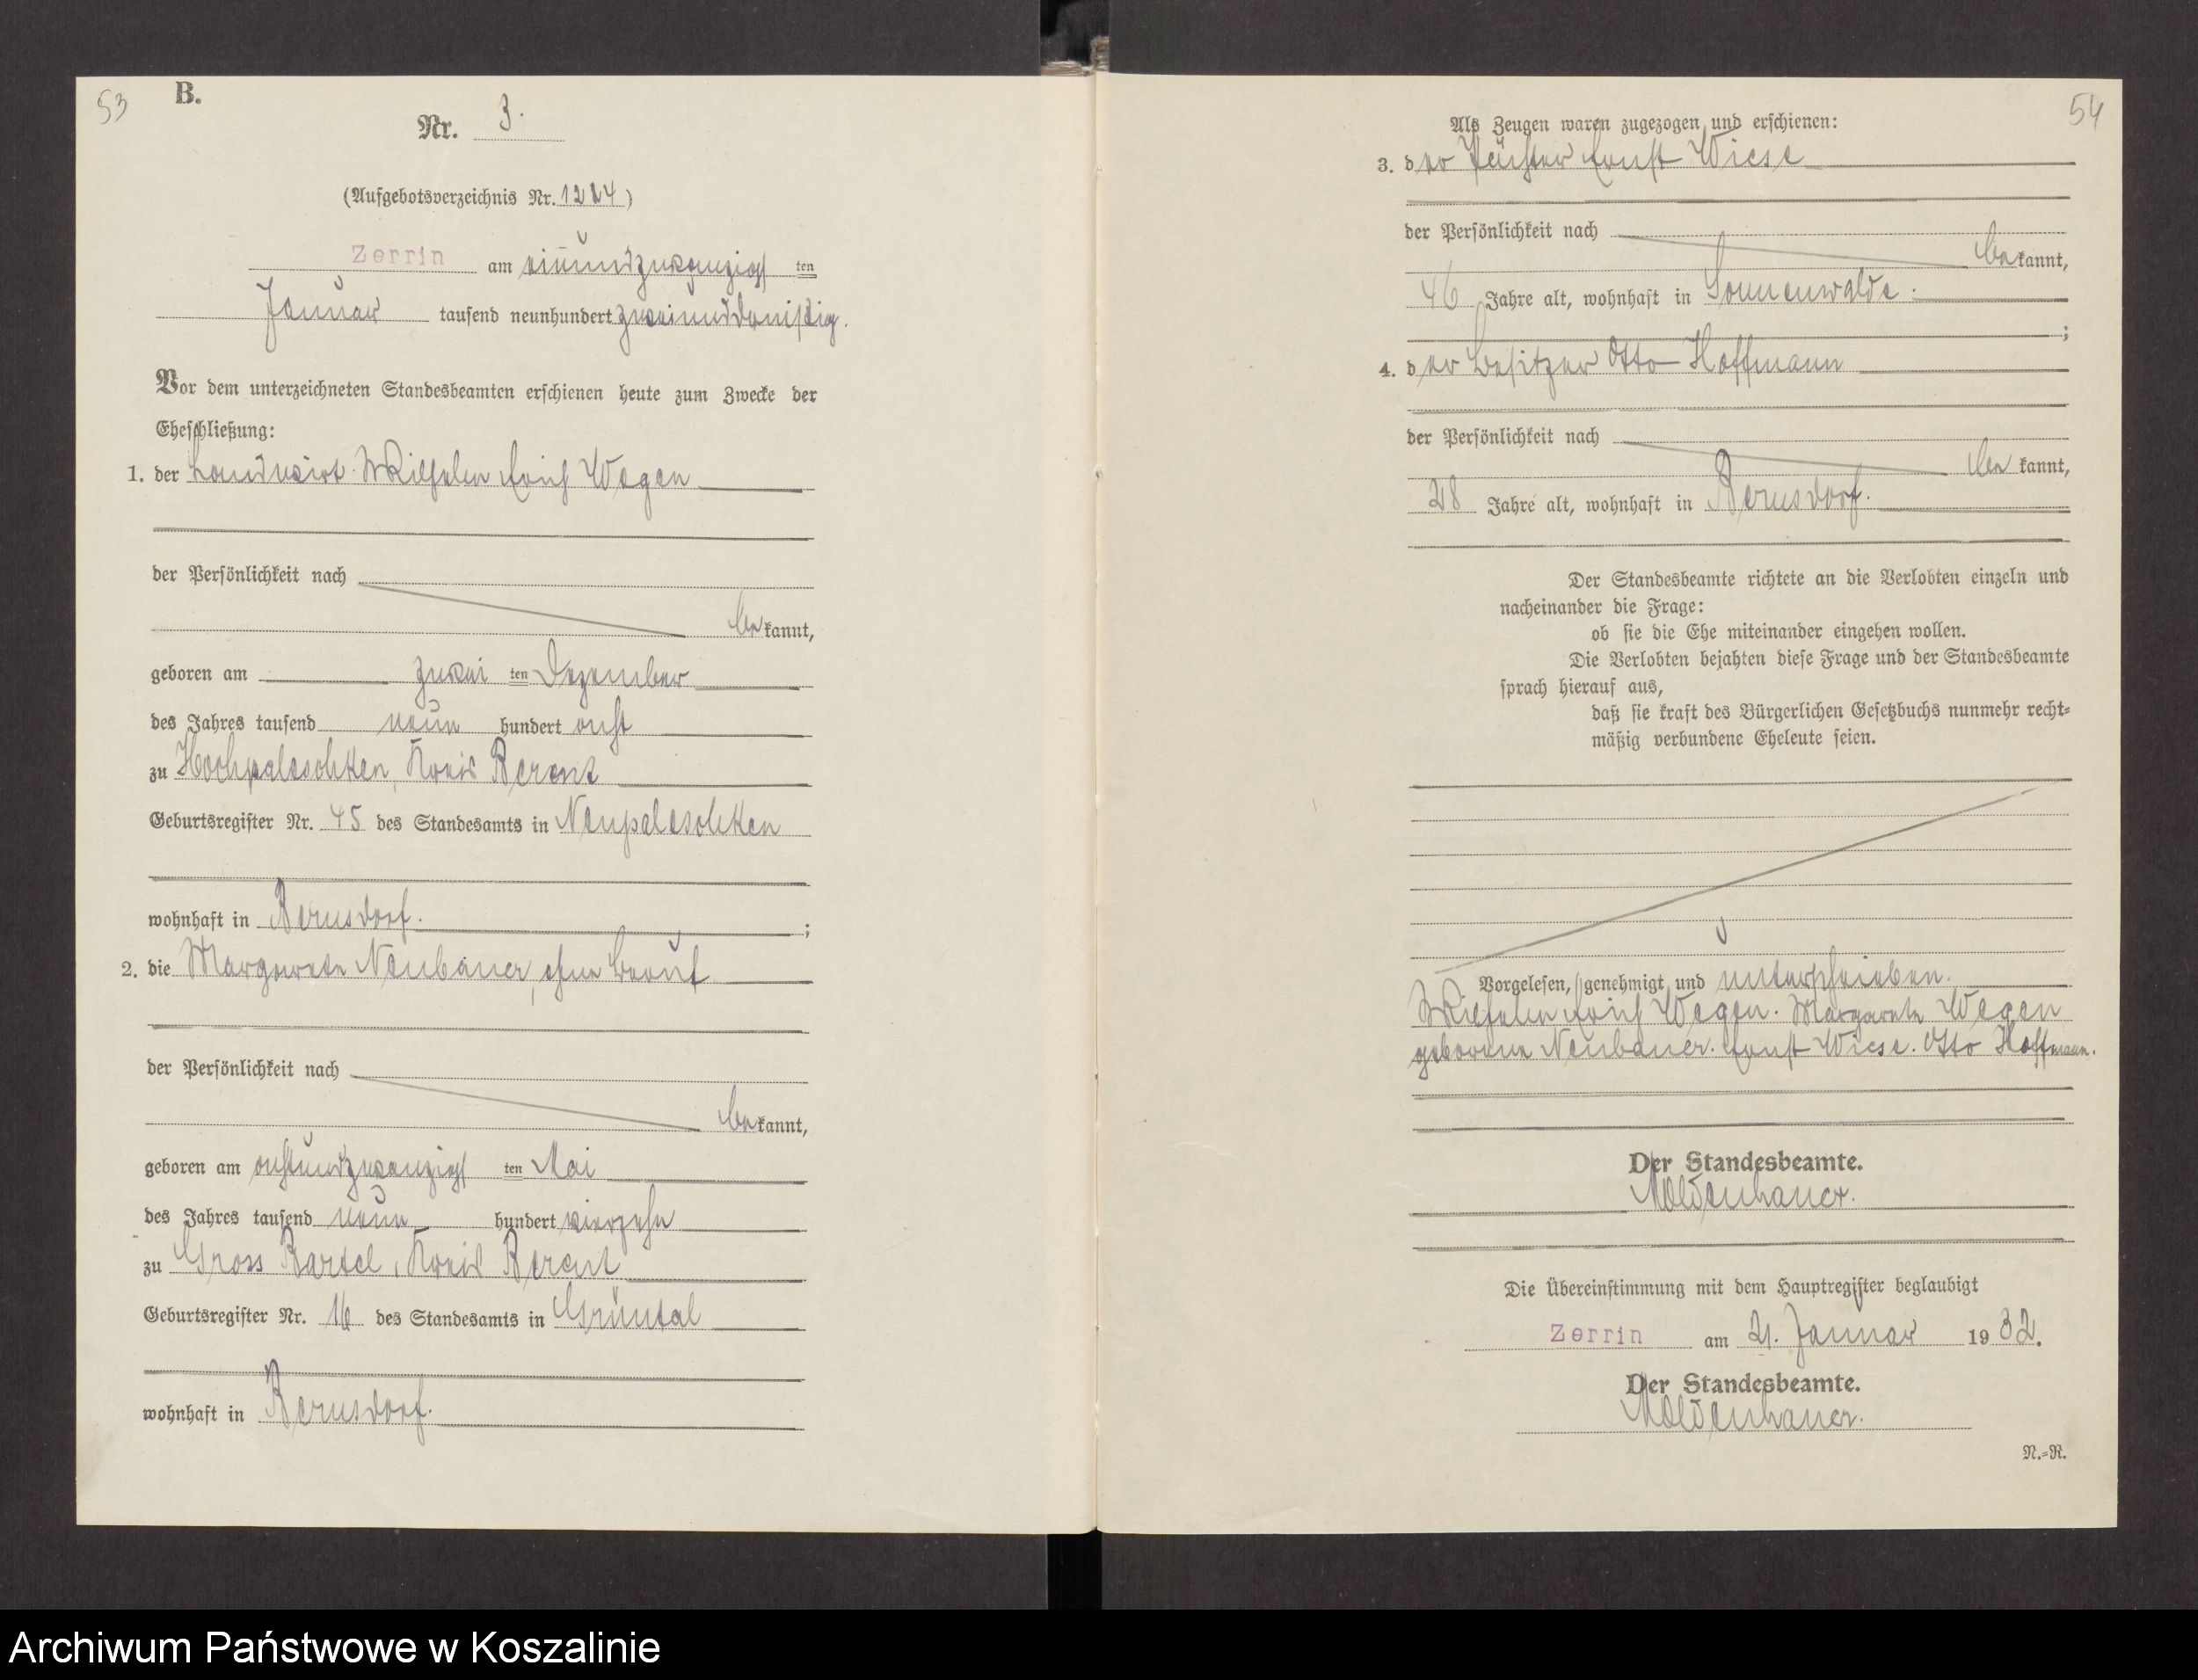 53
B.
Nr. 3.
(Aufgebotsverzeichnis Nr. )
Zerrin am einundzwanzigst ten
Januar tausend neunhundert zweiunddreißig.
Vor dem unterzeichneten Standesbeamten erschienen heute zum Zwecke der
Eheschließung:
1. der Landwirt Wilhelm Erich Wegen
der Persönlichkeit nach
be kannt,
geboren am zwei ten Dezember
des Jahres tausend neun hundert acht
zu Hochpaleschken, Kreis Berent
Geburtsregister Nr. 45 des Standesamts in Neupaleschken
wohnhaft in Bernsdorf. ;
2. die Margarete Neubauer, ohne Beruf
der Persönlichkeit nach
be kannt,
geboren am achtundzwanzigst ten Mai
des Jahres tausend neun hundert vierzehn
zu Gross Bartel, Kreis Berent
Geburtsregister Nr. 16 des Standesamts in Grüntal
wohnhaft in Bernsdorf.
54
Als Zeugen waren zugezogen und erschienen:
3. der Küster Ernst Wiese
der Persönlichkeit nach
be kannt,
46 Jahre alt, wohnhaft in Sonnenwalde.
;
4. der Besitzer Otto Hoffmann
der Persönlichkeit nach
be kannt,
28 Jahre alt, wohnhaft in Bernsdorf.
Der Standesbeamte richtete an die Verlobten einzeln und
nacheinander die Frage:
ob sie die Ehe miteinander eingehen wollen.
Die Verlobten bejahten diese Frage und der Standesbeamte
sprach hierauf aus,
daß sie kraft des Bürgerlichen Gesetzbuchs nunmehr recht-
mäßig verbundene Eheleute seien.
Vorgelesen, genehmigt und unterschrieben.
Wilhelm Erich Wegen. Margarete Wegen
geborene Neubauer. Ernst Wiese. Otto Hoffmann.
Der Standesbeamte.
Moldenhauer.
Die Übereinstimmung mit dem Hauptregister beglaubigt
Zerrin am 21. Januar 19 32.
Der Standesbeamte.
Moldenhauer.
N.=R.
Archiwum Państwowe w Koszalinie